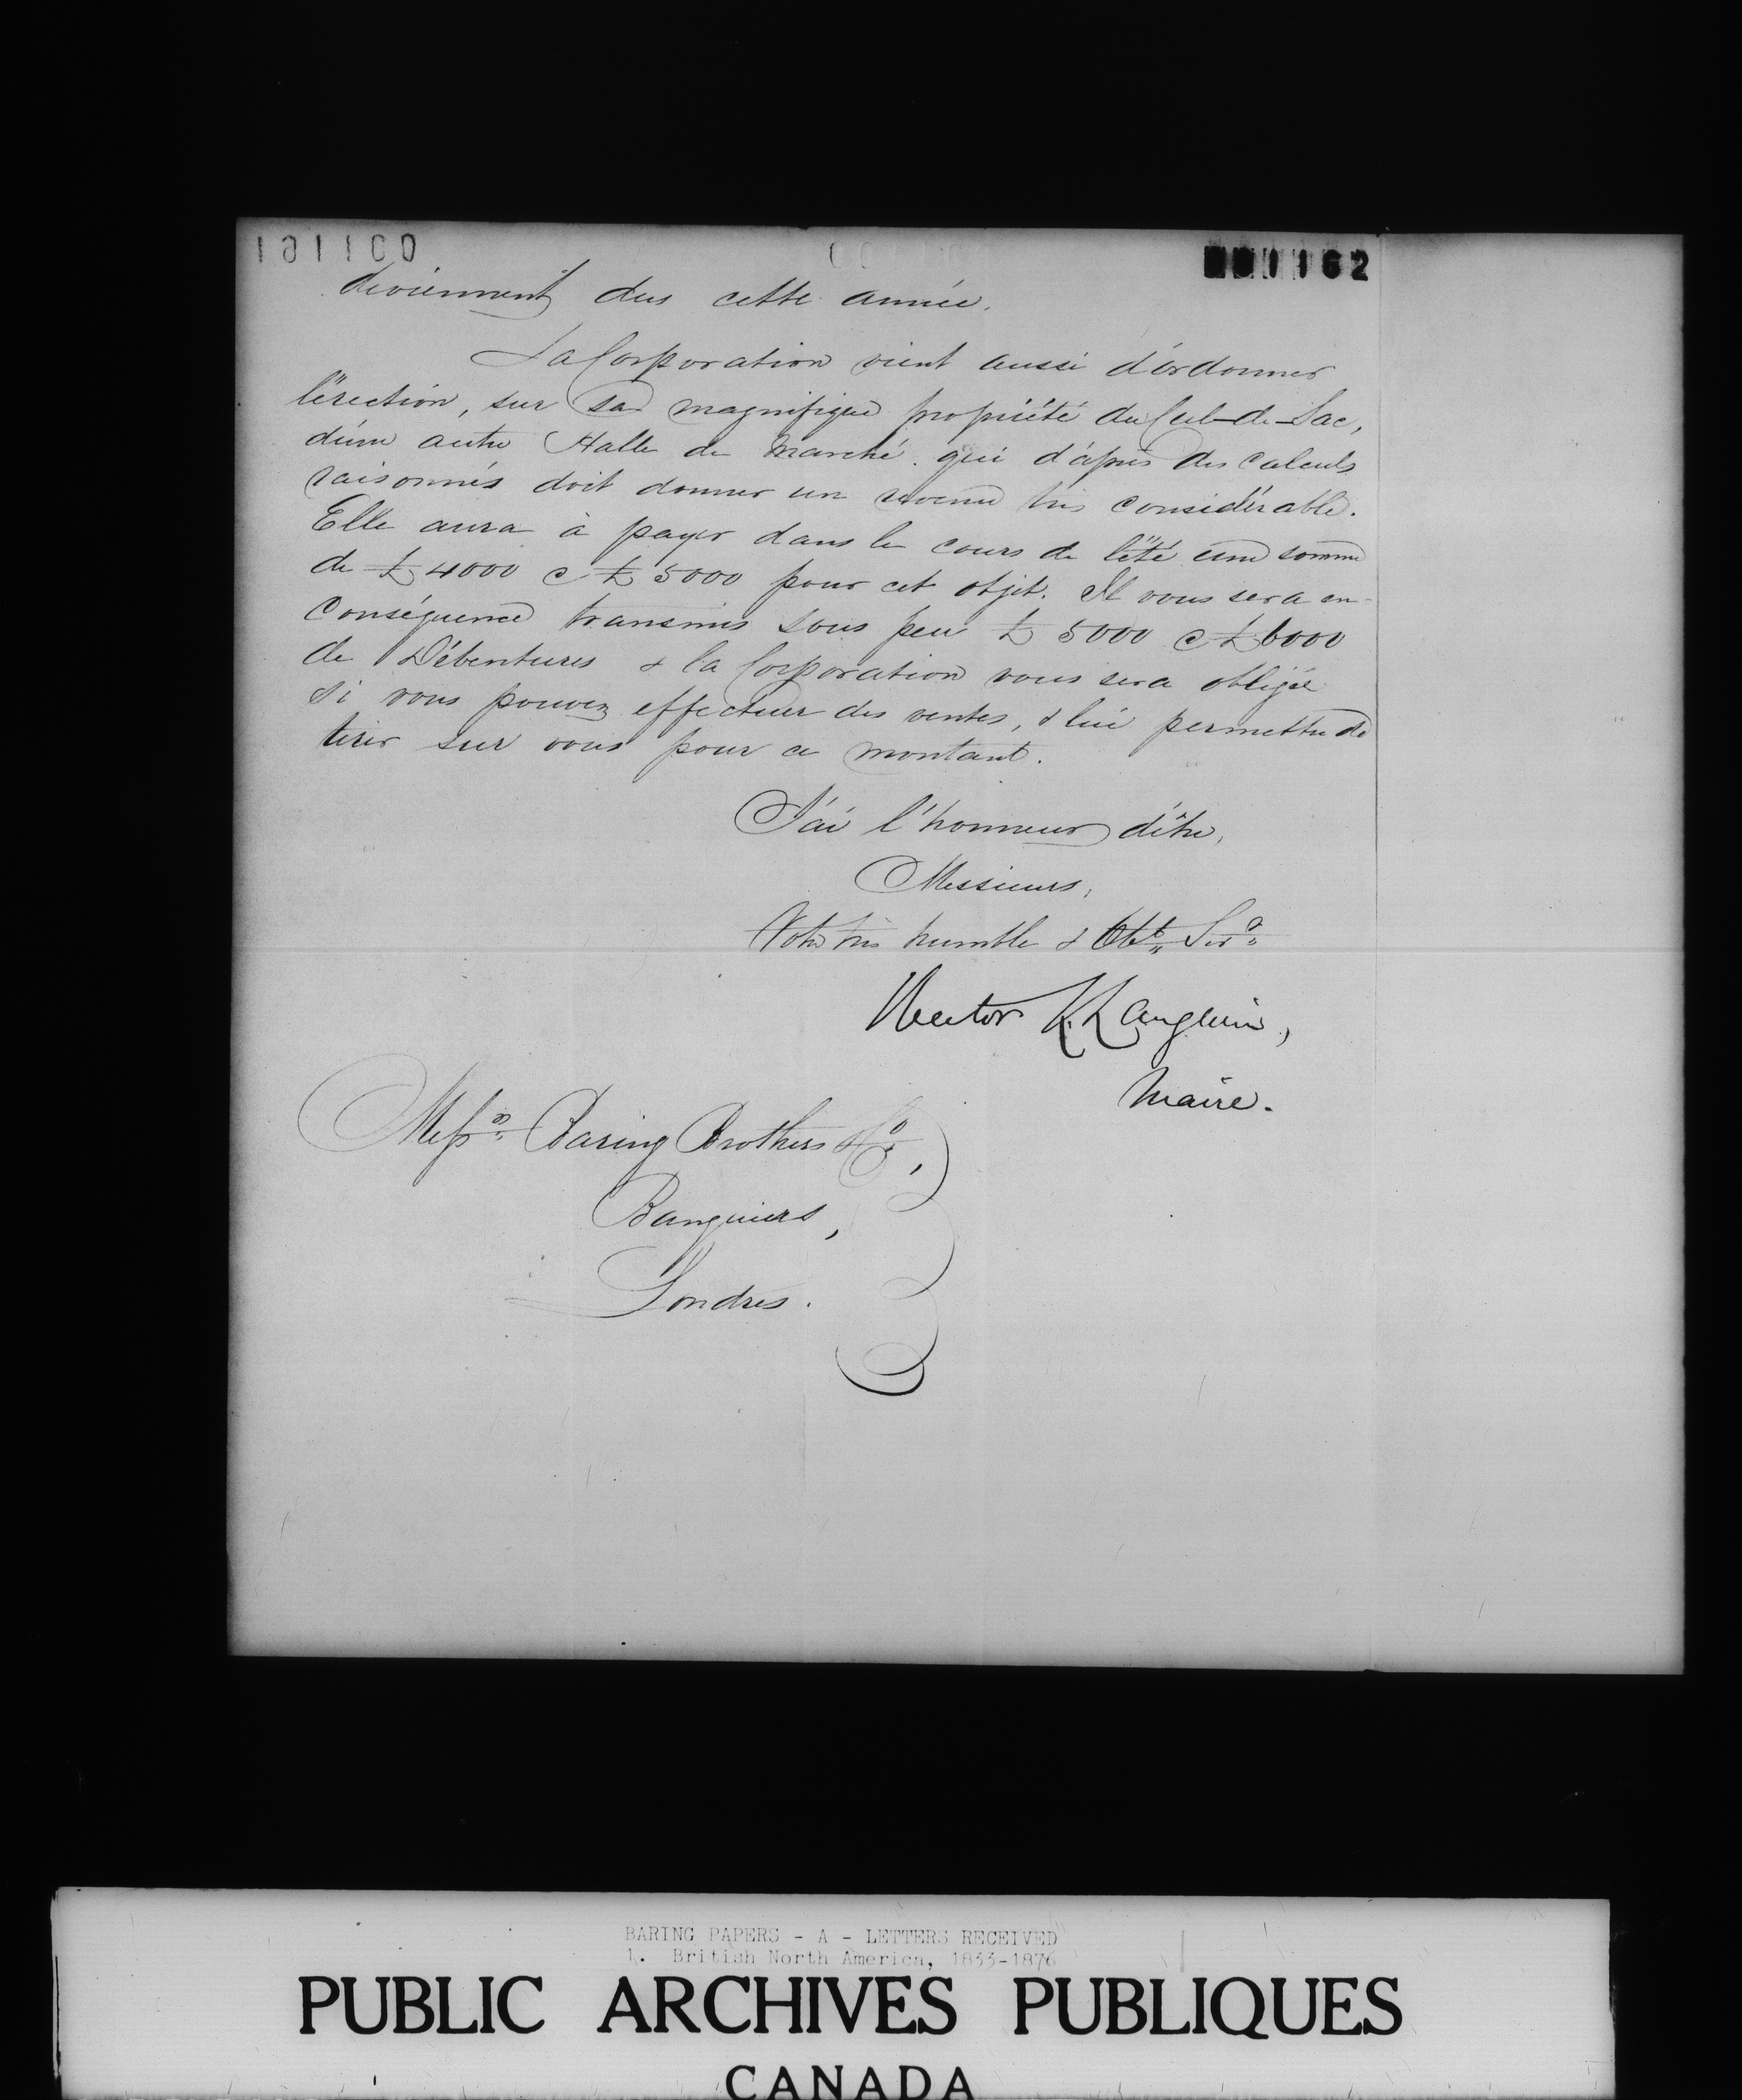 001162
deviennent dus cette année.
La Corporation vient aussi d'ordonner
l'érection, sur sa magnifique propriété du Cul-de-Sac,
d'une autre Halle de Marché qui d'après des calculs
raisonnés doit donner un revenu très considérable.
Elle aura à payer dans le cours de l'été une somme
de £4000 @ £5000 pour cet objet. Il vous sera en
conséquence transmis sous peu £5000 @ £6000
de Débentures & la Corporation vous sera obligée
si vous pouvez effectuer des ventes, & lui permettre de
tirer sur vous pour ce montant.
J'ai l'honneur d'être,
Messieurs,
Votre très humble & Obt. Ser.
Hector L. Langevin,
Maire.
Messrs. Baring Brothers & Co.,
Banquiers,
Londres.
BARING PAPERS - A - LETTERS RECEIVED
1. British North America, 1833-1876
PUBLIC ARCHIVES PUBLIQUES
CANADA